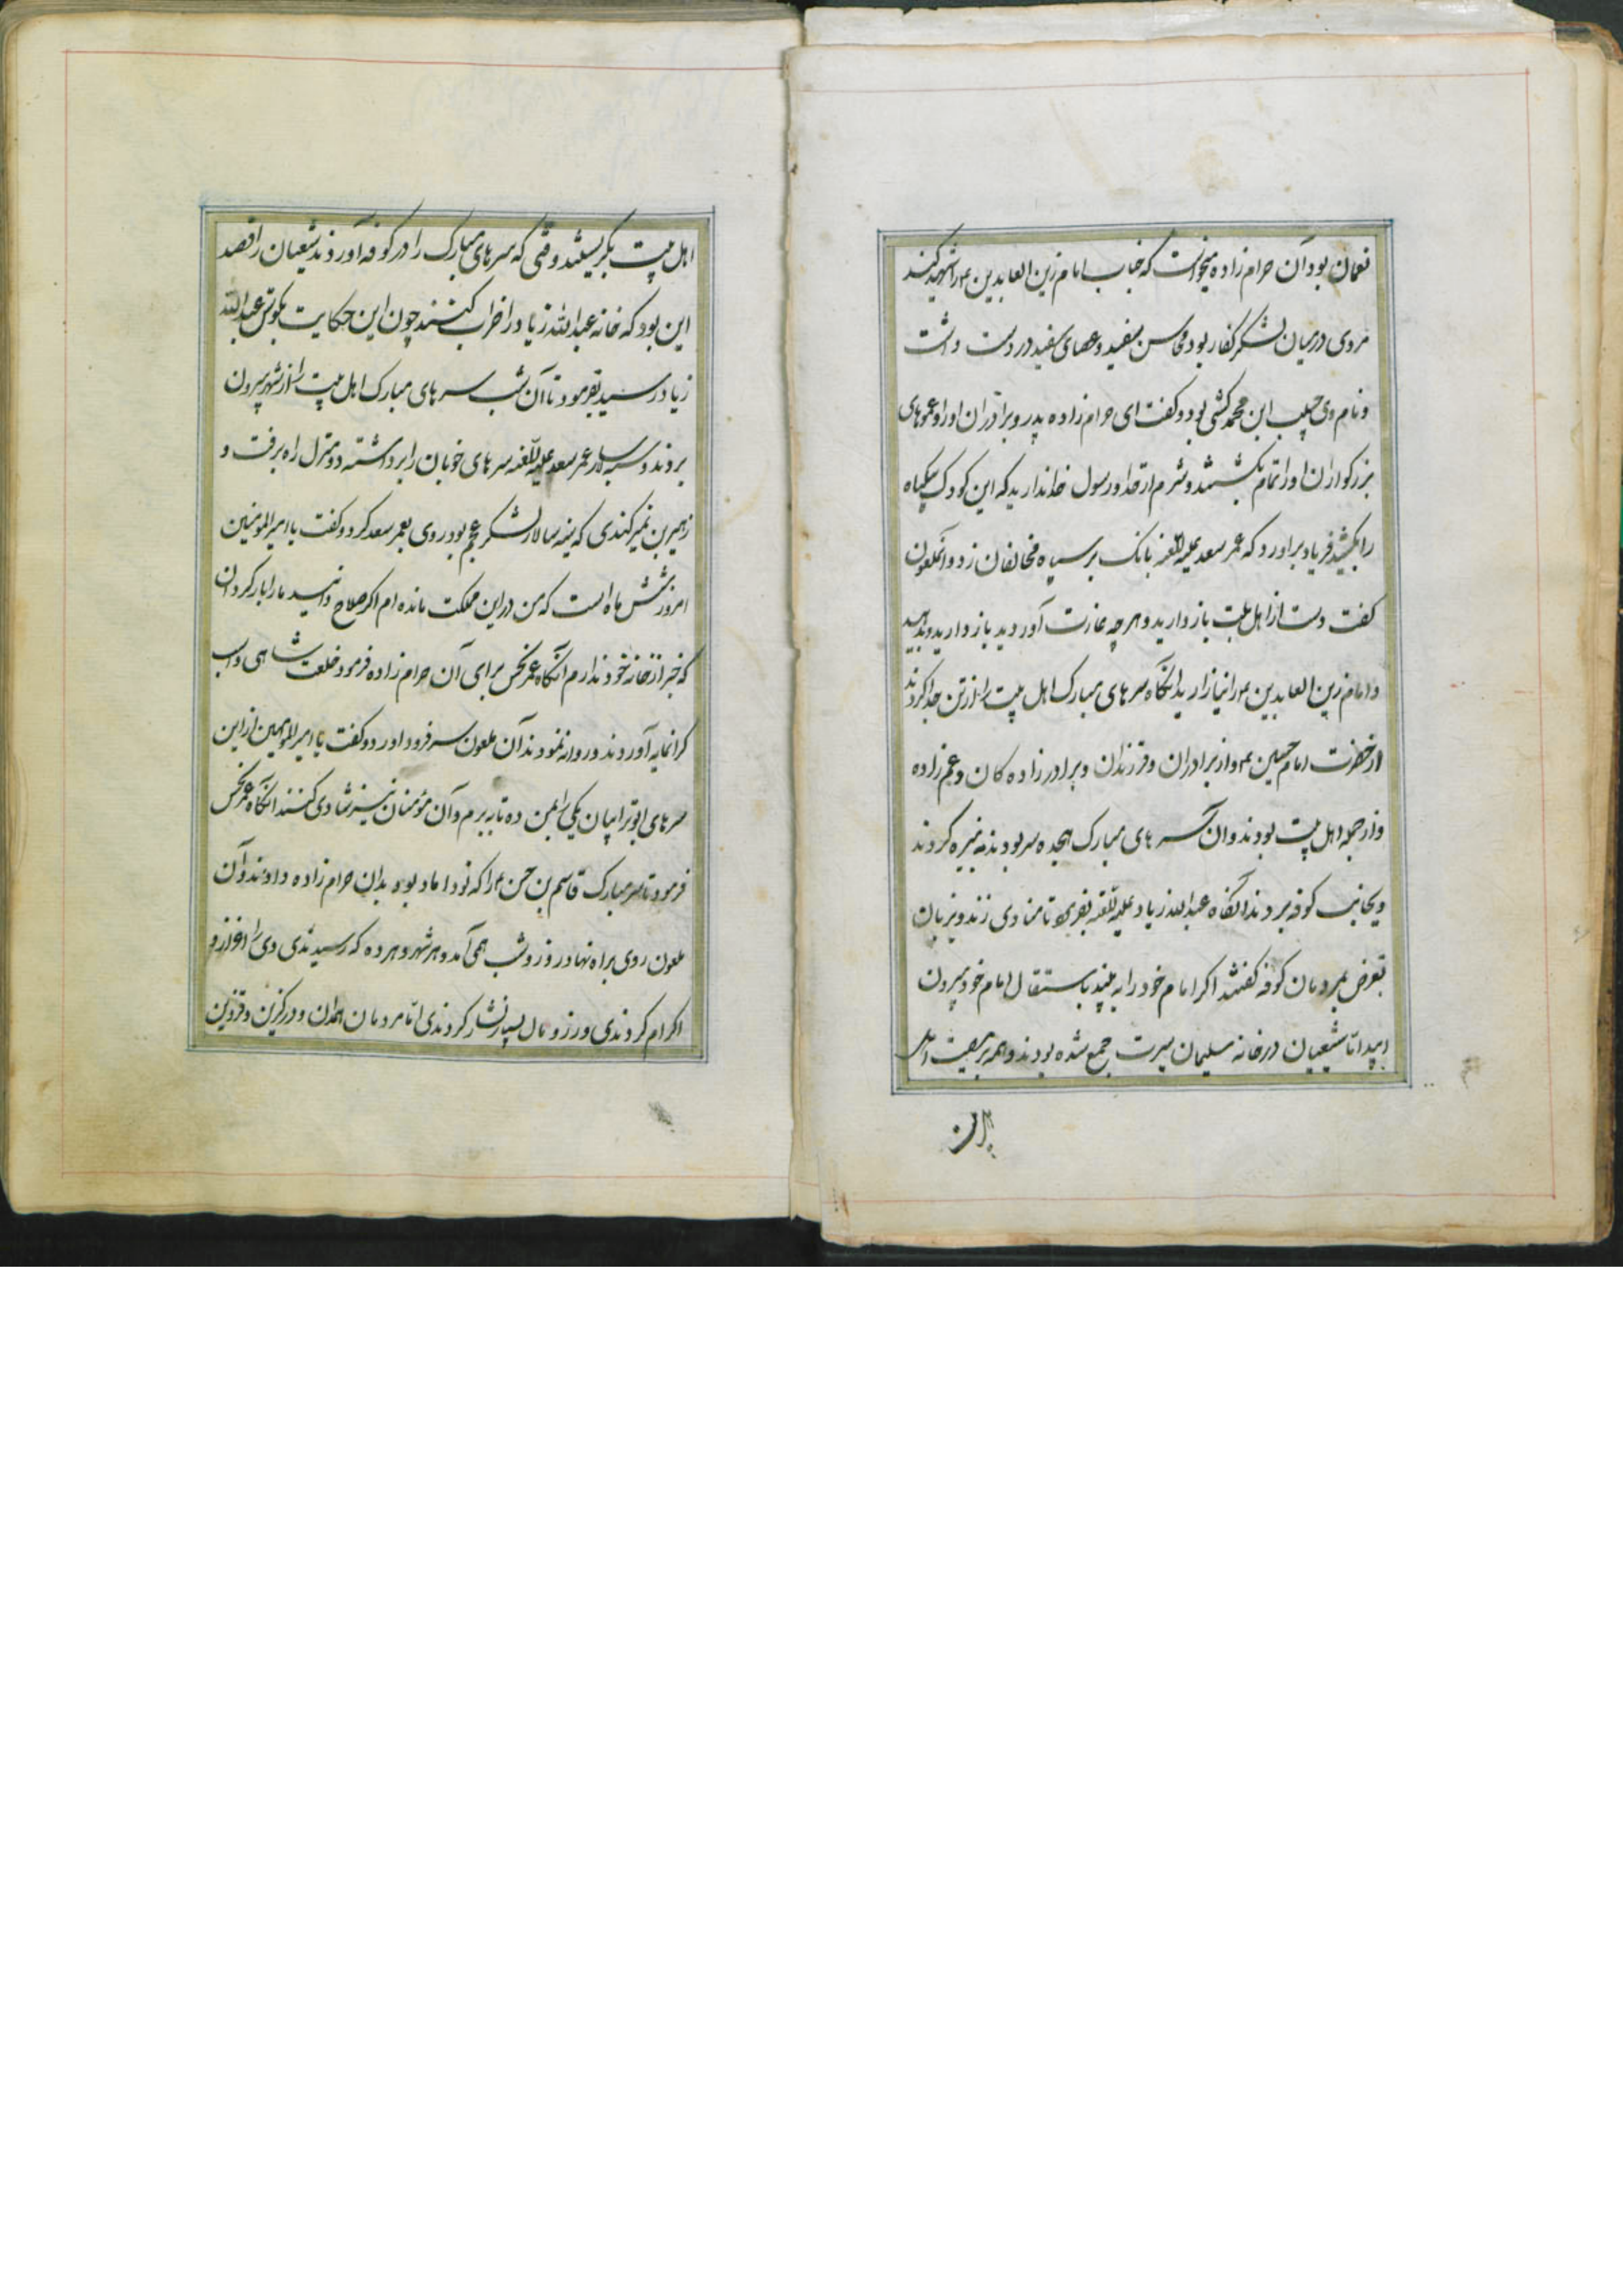 نعمان بود آن حرام زاده میخواست که جناب امام زین العابدین ع را شهید کند
مردی در میان لشکر کفار بود محاسن سفید و عصای سفید در دست داشت
و نام وی حبیب ابن محمد کشی بود و گفت ای حرام زاده پدر و برادران او را و عموهای
بزرگواران او را تمام بکشتید و شرم از خدا و رسول خدا ندارید که این کودک بیگناه
را بکشید فریاد براورد که عمر سعد علیه اللعنه بانک بر سپاه مخالفان زد و آنملعون
گفت دست از اهل بیت باز دارید و هر چه بغارت آوردید باز دارید و بدهید
و امام زین العابدین ع را نیازارید انگاه سرهای مبارک اهل بیت را از تن جدا کردند
از حضرت امام حسین ع و از برادران و فرزندان و برادر زاده کان و عم زاده
و از جمله اهل بیت بودند و آن سرهای مبارک هجده سر بودند به نیزه کردند
و بجانب کوفه بردند انگاه عبدالله زیاد علیه اللعنه بفرمود تا منادی زند و بزبان
تعرض بمردمان کوفه گفتند اکر امام خود را به بینید باستقبال امام خود بیرون
ایید اما شیعیان در خانه سلیمان سیرت جمع شده بودند و همه بر مصیبت اهل
اهل بیت بکریستند وقتی که سرهای مبارک را در کوفه آوردند شیعیان را قصد
این بود که خانه عبدالله زیاد را خراب کنند چون این حکایت بکوش عبدالله
زیاد رسید بفرمود تا آن شب سرهای مبارک اهل بیت را از شهر بیرون
بردند و سپه سالار عمر سعد علیه اللعنه سرهای خوبان را برداشته دو منزل راه برفت و
زهیر بن نمیر کندی که سپه سالار لشکر عجم بود روی بعمر سعد کرد و گفت یا امیرالمومنین
امروز شش ماه است که من در این مملکت مانده ام اکر صلاح دانید ما را باز کردان
که خبر از خانه خود ندارم آنگاه عمر نحس برای آن حرام زاده فرمود خلعت شاهی و اسب
کرانمایه آوردند و روانه نمودند آن ملعون سر فرود اورد و گفت یا امیر المومنین از این
سرهای ابوترابیان یکی را بمن ده تا ببرم و آن مؤمنان نیز شادی کنند انگاه عمر نحس
فرمود تا سر مبارک قاسم بن حسن ع را که نو داماد بود بدان حرام زاده دادند و آن
ملعون روی براه نهاد روز و شب همی آمد و هر شهر و هر ده که رسیدندی وی را اعزاز و
اکرام کردندی و زر و مال بسیار نثار کردندی اما مردمان همدان و درکزین و قزوین